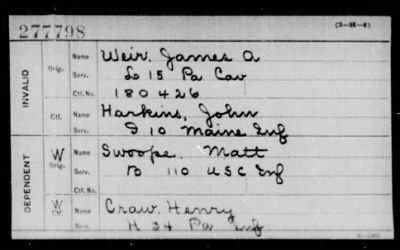 277798
(3-H-4)
INVALID
Orig.
Name Weir, James A
Serv. L 15 Pa Cav
Ctf. No. 180426
Ctf.
Name Harkins, John
Serv. I 10 Maine Inf
DEPENDENT
W
Orig.
Name Swoope, Matt
Serv. B 110 USC Inf
Ctf. No.
W
Ctf.
Name Craw, Henry
Serv. H 34 Pa Inf